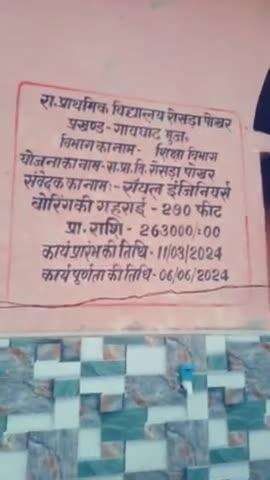 रा. प्राथमिक विद्यालय रोसड़ा पोखर
प्रखण्ड - गायघाट मुज॰
विभाग का नाम - शिक्षा विभाग
योजना का नाम - रा. प्रा. वि. रोसड़ा पोखर
संवेदक का नाम :- रॉयल इंजिनियर्स
बोरिंग की गहराई - 290 फीट
प्रा. राशि - 263000/=00
कार्य प्रारंभ की तिथि - 11/03/2024
कार्य पूर्णता की तिथि - 06/06/2024